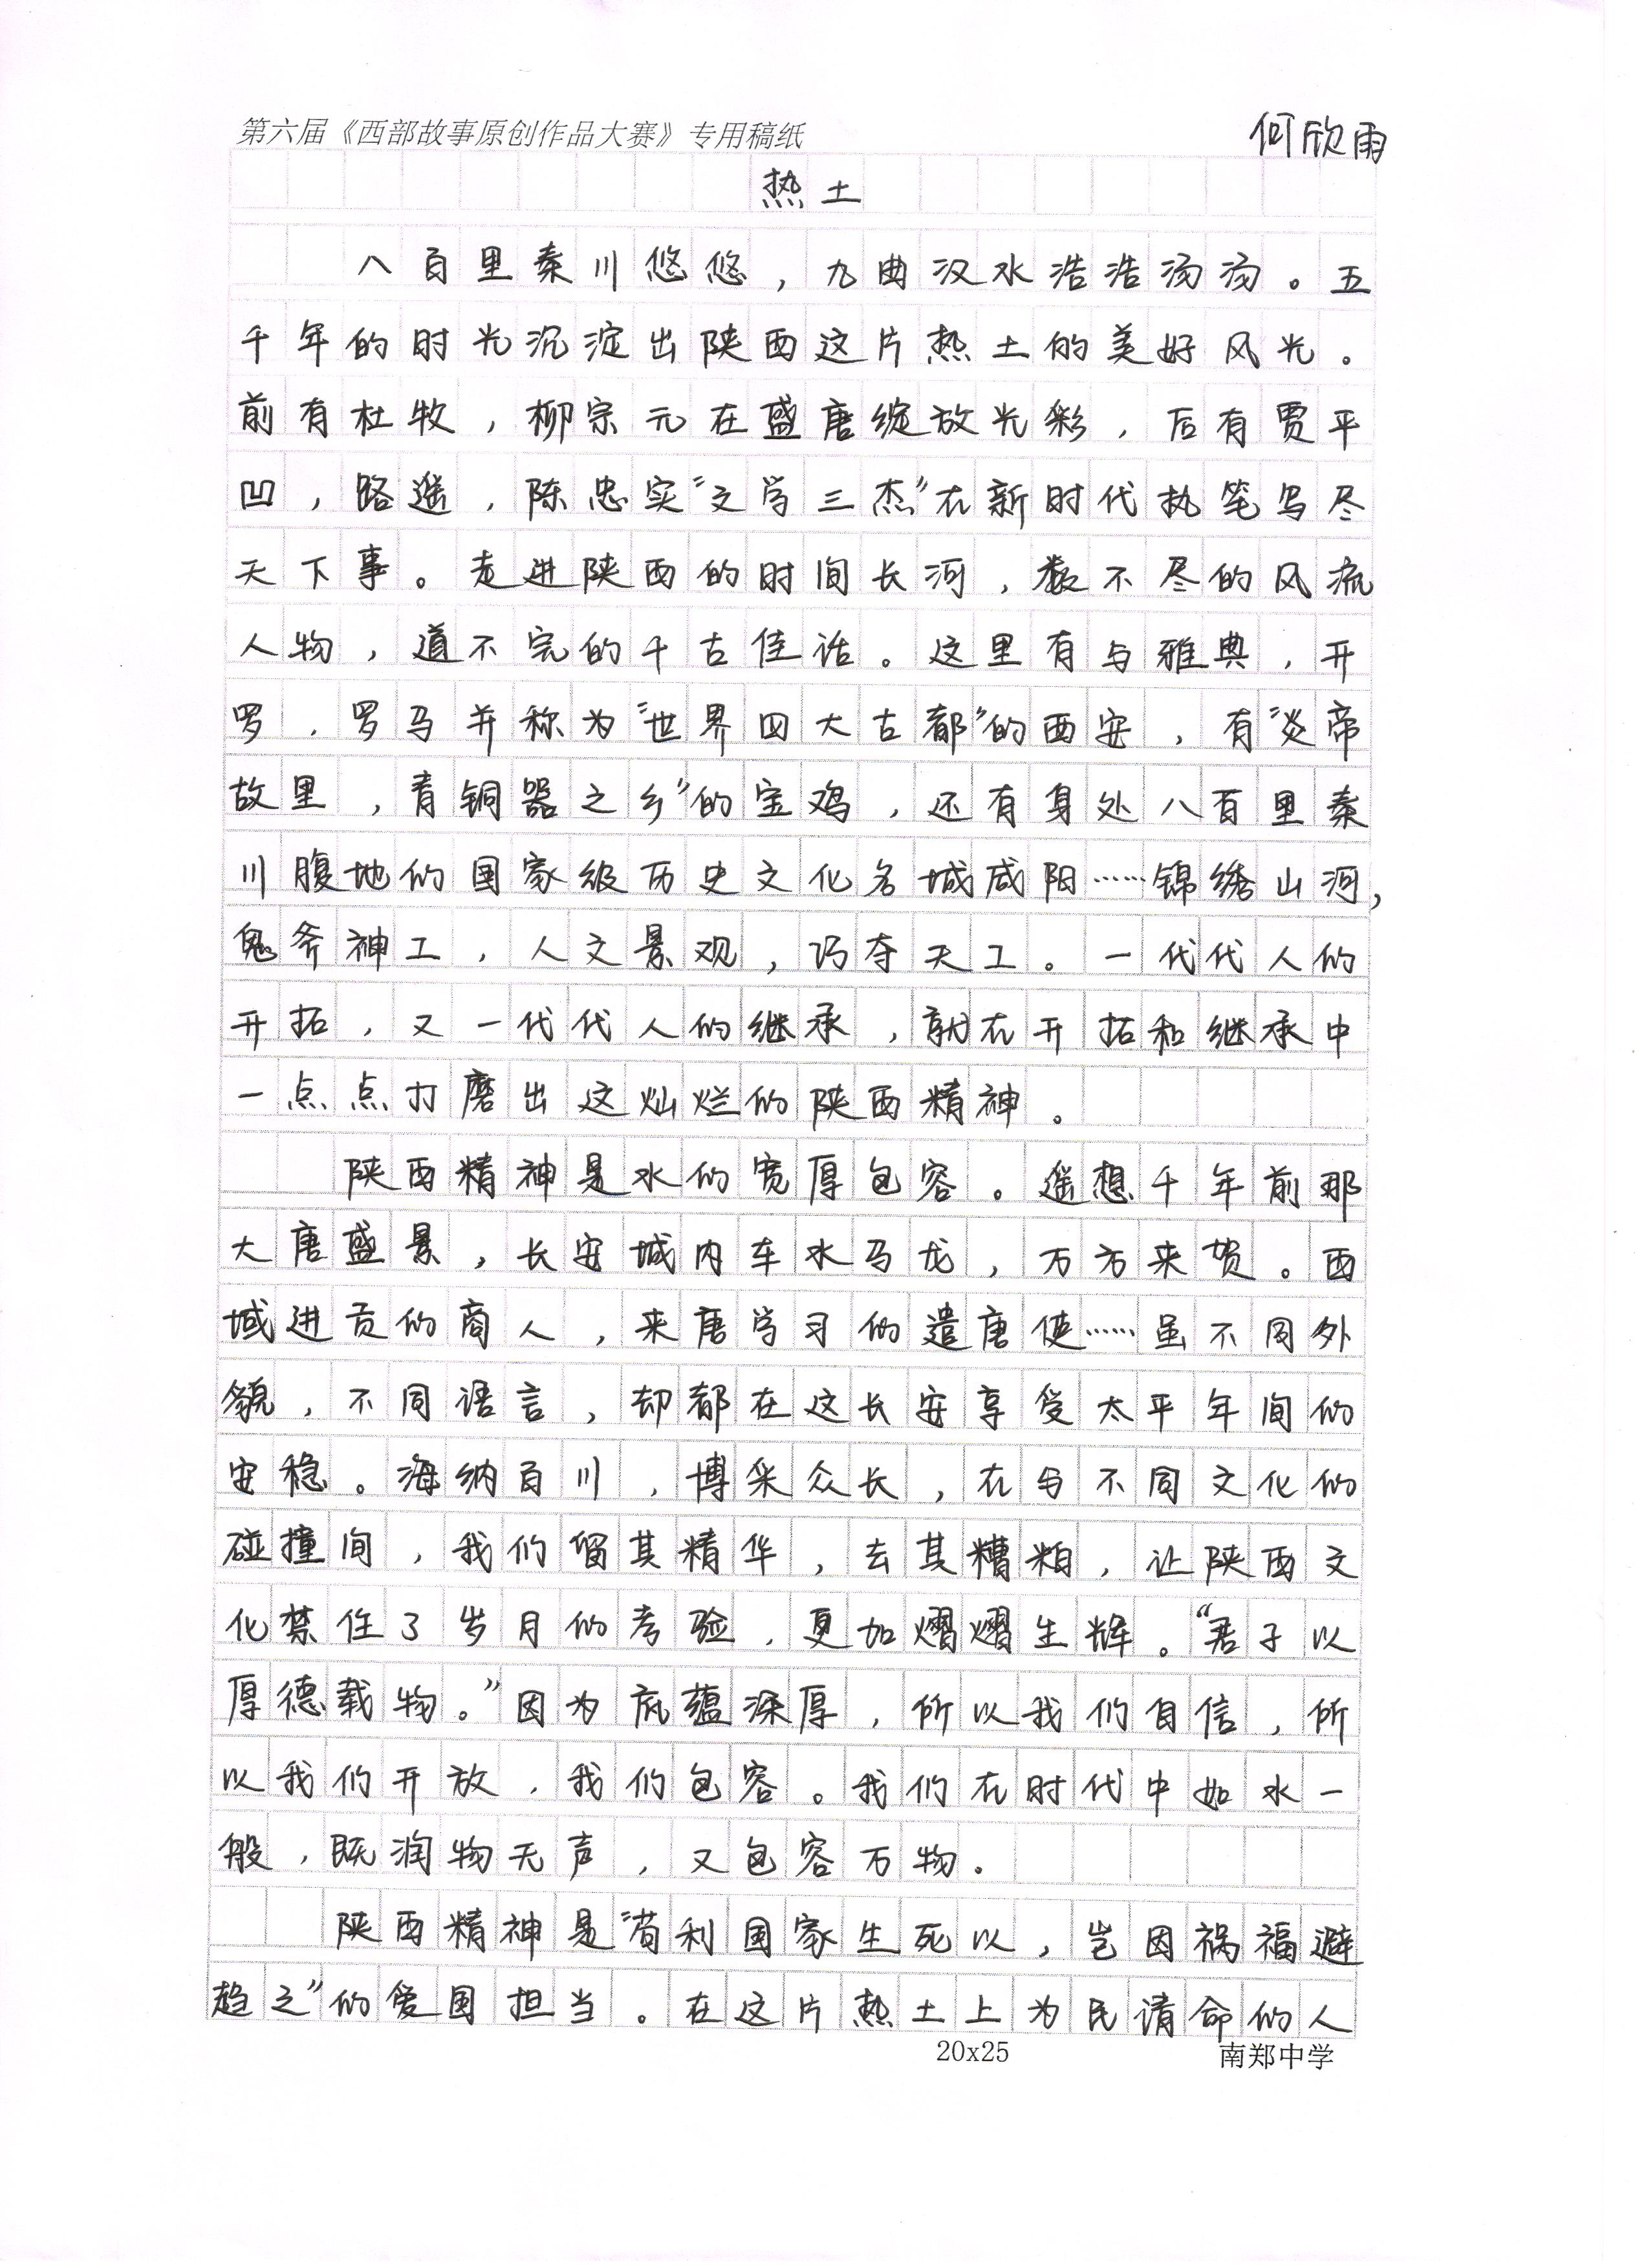 第六届《西部故事原创作品大赛》专用稿纸
何欣雨
热土
八百里秦川悠悠，九曲汉水浩浩汤汤。五
千年的时光沉淀出陕西这片热土的美好风光。
前有杜牧，柳宗元在盛唐绽放光彩，后有贾平
凹，路遥，陈忠实“文学三杰”在新时代执笔写尽
天下事。走进陕西的时间长河，数不尽的风流
人物，道不完的千古佳话。这里有与雅典，开
罗，罗马并称为“世界四大古都”的西安，有“炎帝
故里，青铜器之乡”的宝鸡，还有身处八百里秦
川腹地的国家级历史文化名城咸阳……锦绣山河，
鬼斧神工，人文景观，巧夺天工。一代代人的
开拓，又一代代人的继承，就在开拓和继承中
一点点打磨出这灿烂的陕西精神。
陕西精神是水的宽厚包容。遥想千年前那
大唐盛景，长安城内车水马龙，万方来贺。西
域进贡的商人，来唐学习的遣唐使……虽不同外
貌，不同语言，却都在这长安享受太平年间的
安稳。海纳百川，博采众长，在与不同文化的
碰撞间，我们留其精华，去其糟粕，让陕西文
化禁住了岁月的考验，更加熠熠生辉。“君子以
厚德载物。”因为底蕴深厚，所以我们自信，所
以我们开放，我们包容。我们在时代中如水一
般，既润物无声，又包容万物。
陕西精神是“苟利国家生死以，岂因祸福避
趋之”的爱国担当。在这片热土上为民请命的人
20x25
南郑中学